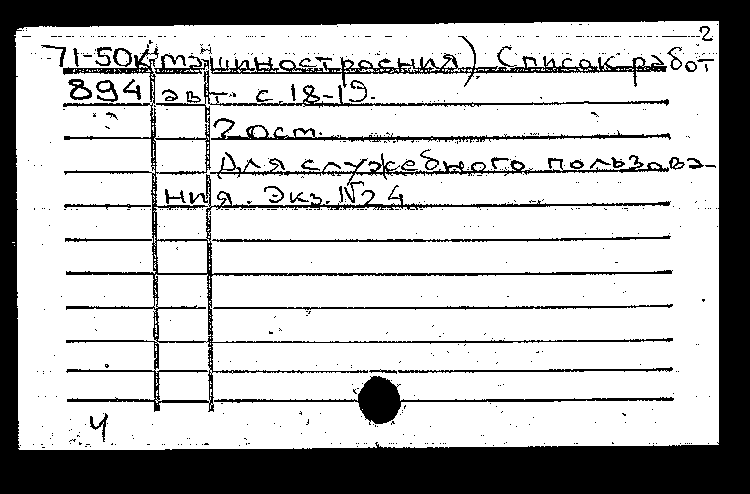 2
71-50к машиностроения). Список работ
894 авт. с. 18-19.
2 ост.
Для служебного пользова-
ния. Экз. №24
4